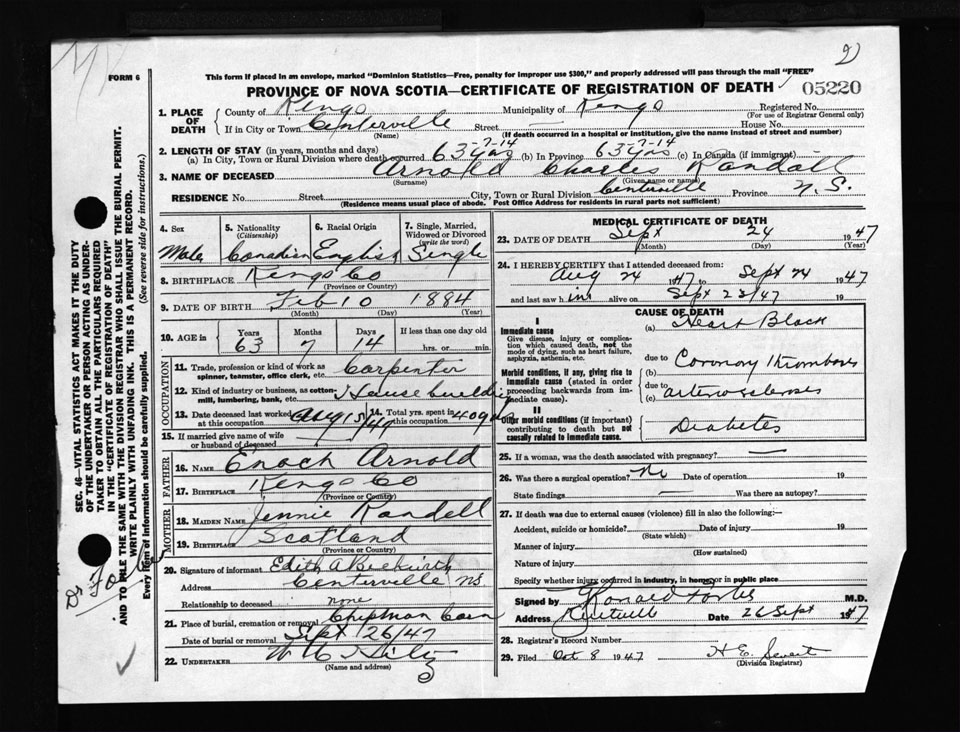 2)
FORM 6
This form if placed in an envelope, marked "Dominion Statistics—Free, penalty for improper use $300," and properly addressed will pass through the mail "FREE"
PROVINCE OF NOVA SCOTIA—CERTIFICATE OF REGISTRATION OF DEATH 05220
1. PLACE OF DEATH
County of Kings Municipality of Kings Registered No.
(For use of Registrar General only)
If in City or Town Centerville Street House No.
(Name) (If death occurred in a hospital or institution, give the name instead of street and number)
2. LENGTH OF STAY (in years, months and days)
(a) In City, Town or Rural Division where death occurred 63 yrs-7-14 (b) In Province 63 yrs-7-14 (c) In Canada (if immigrant)
3. NAME OF DECEASED Arnold Charles Randall
(Surname) (Given name or names)
RESIDENCE No. Street City, Town or Rural Division Centerville Province N.S.
(Residence means usual place of abode. Post Office Address for residents in rural parts not sufficient)
4. Sex
Male
5. Nationality
(Citizenship)
Canadian
6. Racial Origin
English
7. Single, Married, Widowed or Divorced
(write the word)
Single
8. BIRTHPLACE Kings Co
(Province or Country)
9. DATE OF BIRTH Feb 10 1884
(Month) (Day) (Year)
10. AGE in
Years Months Days If less than one day old
63 7 14 hrs. or min.
OCCUPATION
11. Trade, profession or kind of work as spinner, teamster, office clerk, etc. Carpenter
12. Kind of industry or business, as cotton-mill, lumbering, bank, etc. House building
13. Date deceased last worked at this occupation Aug 15/47
14. Total yrs. spent in this occupation 40 yrs
15. If married give name of wife or husband of deceased
FATHER
16. NAME Enoch Arnold
17. BIRTHPLACE Kings Co
(Province or Country)
MOTHER
18. MAIDEN NAME Jennie Randell
19. BIRTHPLACE Scotland
(Province or Country)
20. Signature of informant Edith A Beckwith
Address Centerville NS
Relationship to deceased none
21. Place of burial, cremation or removal Chipman Corn
Date of burial or removal Sept 26/47
22. UNDERTAKER
(Name and address)
MEDICAL CERTIFICATE OF DEATH
23. DATE OF DEATH Sept 24 1947
(Month) (Day) (Year)
24. I HEREBY CERTIFY that I attended deceased from:
Aug 24 1947 to Sept 24 1947
and last saw him alive on Sept 23/47 19
CAUSE OF DEATH
I
Immediate cause
Give disease, injury or complication which caused death, not the mode of dying, such as heart failure, asphyxia, asthenia, etc.
(a) Heart Block
due to
Morbid conditions, if any, giving rise to immediate cause (stated in order proceeding backwards from immediate cause).
(b) Coronary thrombosis
due to
(c) arteriosclerosis
II
Other morbid conditions (if important) contributing to death but not causally related to immediate cause.
Diabetes
25. If a woman, was the death associated with pregnancy? —
26. Was there a surgical operation? No Date of operation 19
State findings — Was there an autopsy?
27. If death was due to external causes (violence) fill in also the following:—
Accident, suicide or homicide? Date of injury 19
(State which)
Manner of injury
(How sustained)
Nature of injury
Specify whether injury occurred in industry, in home, or in public place
Signed by Ronald Forbes M.D.
Address Kentville Date 26 Sept 1947
28. Registrar's Record Number
29. Filed Oct 8 1947
(Division Registrar)
SEC. 46—VITAL STATISTICS ACT MAKES IT THE DUTY
OF THE UNDERTAKER OR PERSON ACTING AS UNDER-
TAKER TO OBTAIN ALL THE PARTICULARS REQUIRED
IN THE "CERTIFICATE OF REGISTRATION OF DEATH"
AND TO FILE THE SAME WITH THE DIVISION REGISTRAR WHO SHALL ISSUE THE BURIAL PERMIT.
WRITE PLAINLY WITH UNFADING INK. THIS IS A PERMANENT RECORD.
Every item of information should be carefully supplied. (See reverse side for instructions.)